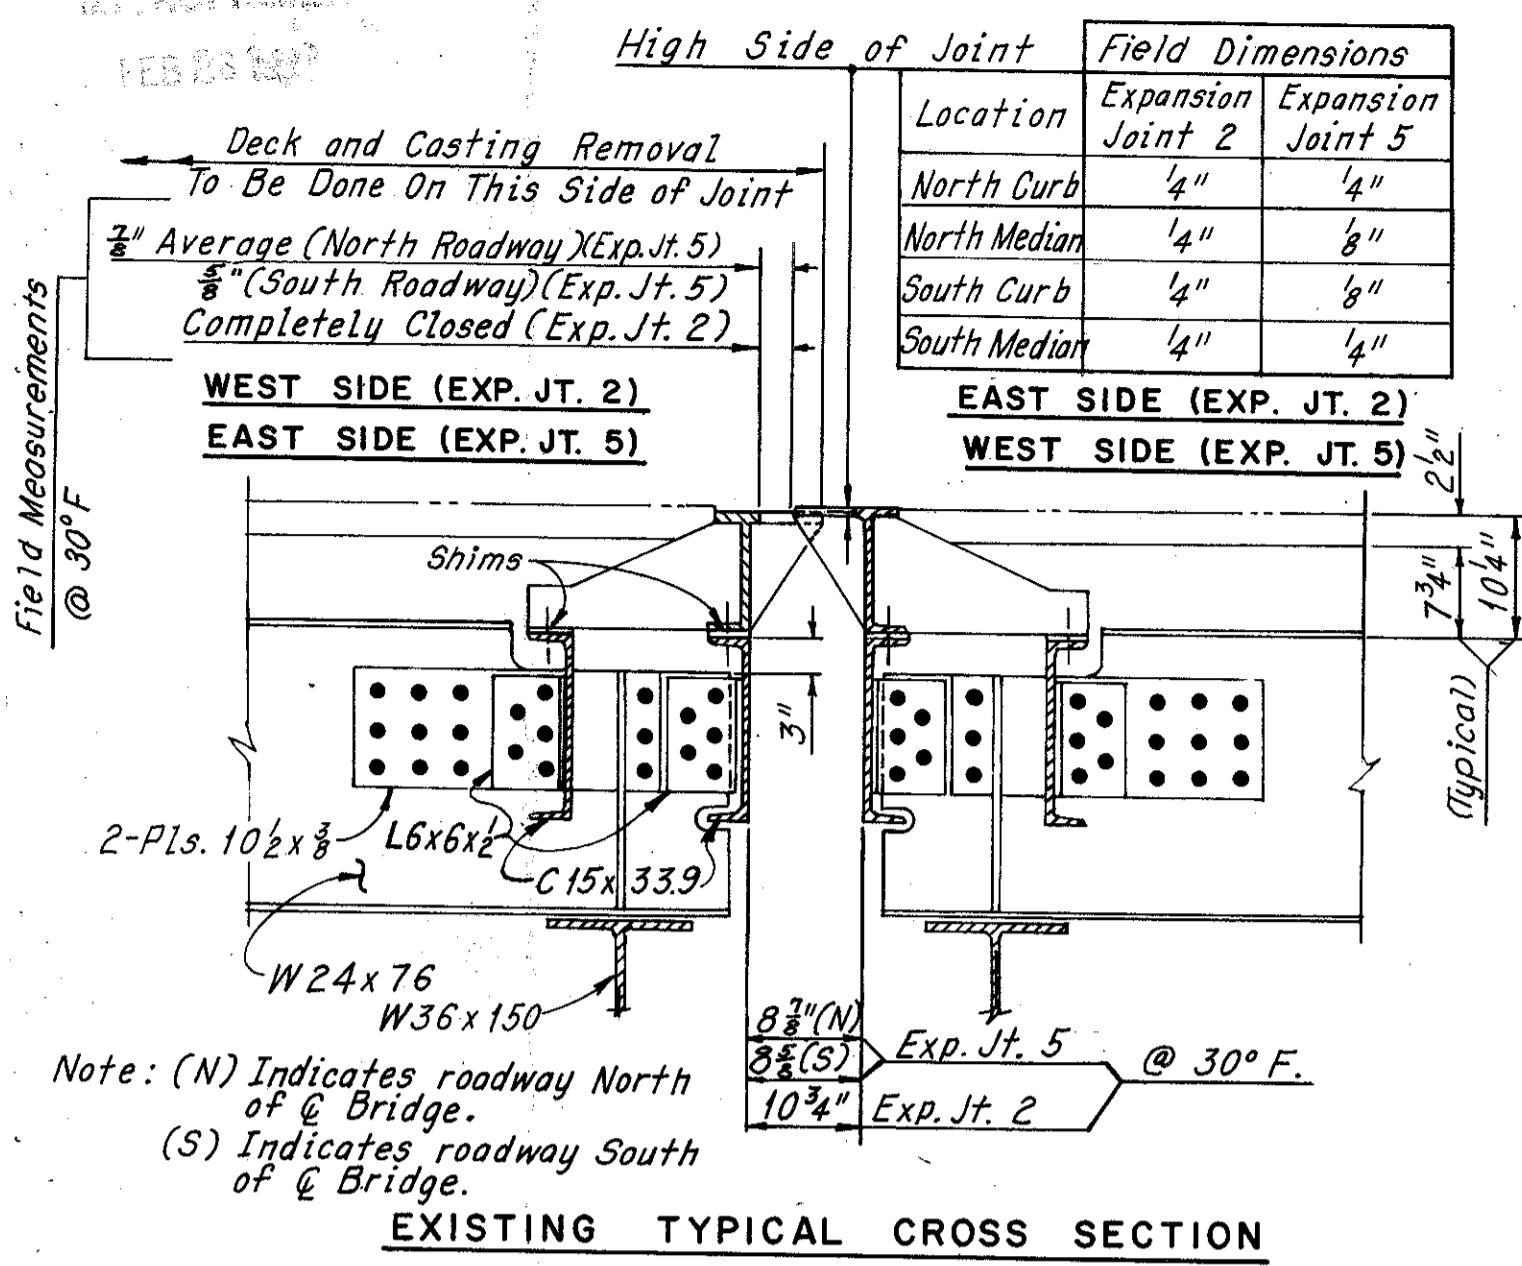 High Side of Joint
Field Dimensions
Location
Expansion Joint 2
Expansion Joint 5
North Curb 1/4" 1/4"
North Median 1/4" 1/8"
South Curb 1/4" 1/8"
South Median 1/4" 1/4"
Deck and Casting Removal
To Be Done On This Side of Joint
7/8" Average (North Roadway)(Exp.Jt. 5)
5/8" (South Roadway)(Exp. Jt. 5)
Completely Closed (Exp. Jt. 2)
Field Measurements
@ 30° F
WEST SIDE (EXP. JT. 2)
EAST SIDE (EXP. JT. 5)
EAST SIDE (EXP. JT. 2)
WEST SIDE (EXP. JT. 5)
2 1/2"
7 3/4"
10 1/4"
(Typical)
Shims
3"
2-Pls. 10 1/2 x 3/8
L6x6x1/2
C 15x 33.9
W 24 x 76
W36 x 150
8 7/8" (N)
8 5/8 (S)
Exp. Jt. 5
@ 30° F.
10 3/4"
Exp. Jt. 2
Note: (N) Indicates roadway North
of ℄ Bridge.
(S) Indicates roadway South
of ℄ Bridge.
EXISTING TYPICAL CROSS SECTION